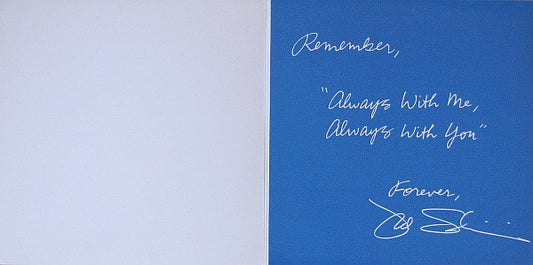 Remember,
"Always With Me,
Always With You"
Forever,